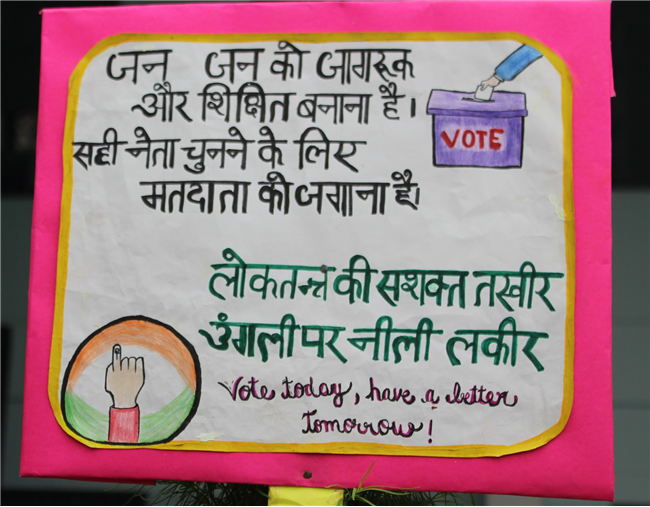 जन जन को जागरूक
और शिक्षित बनाना है।
VOTE
सही नेता चुनने के लिए
मतदाता को जगाना है।
लोकतन्त्र की सशक्त तस्वीर
उंगली पर नीली लकीर
Vote today, have a better
tomorrow!